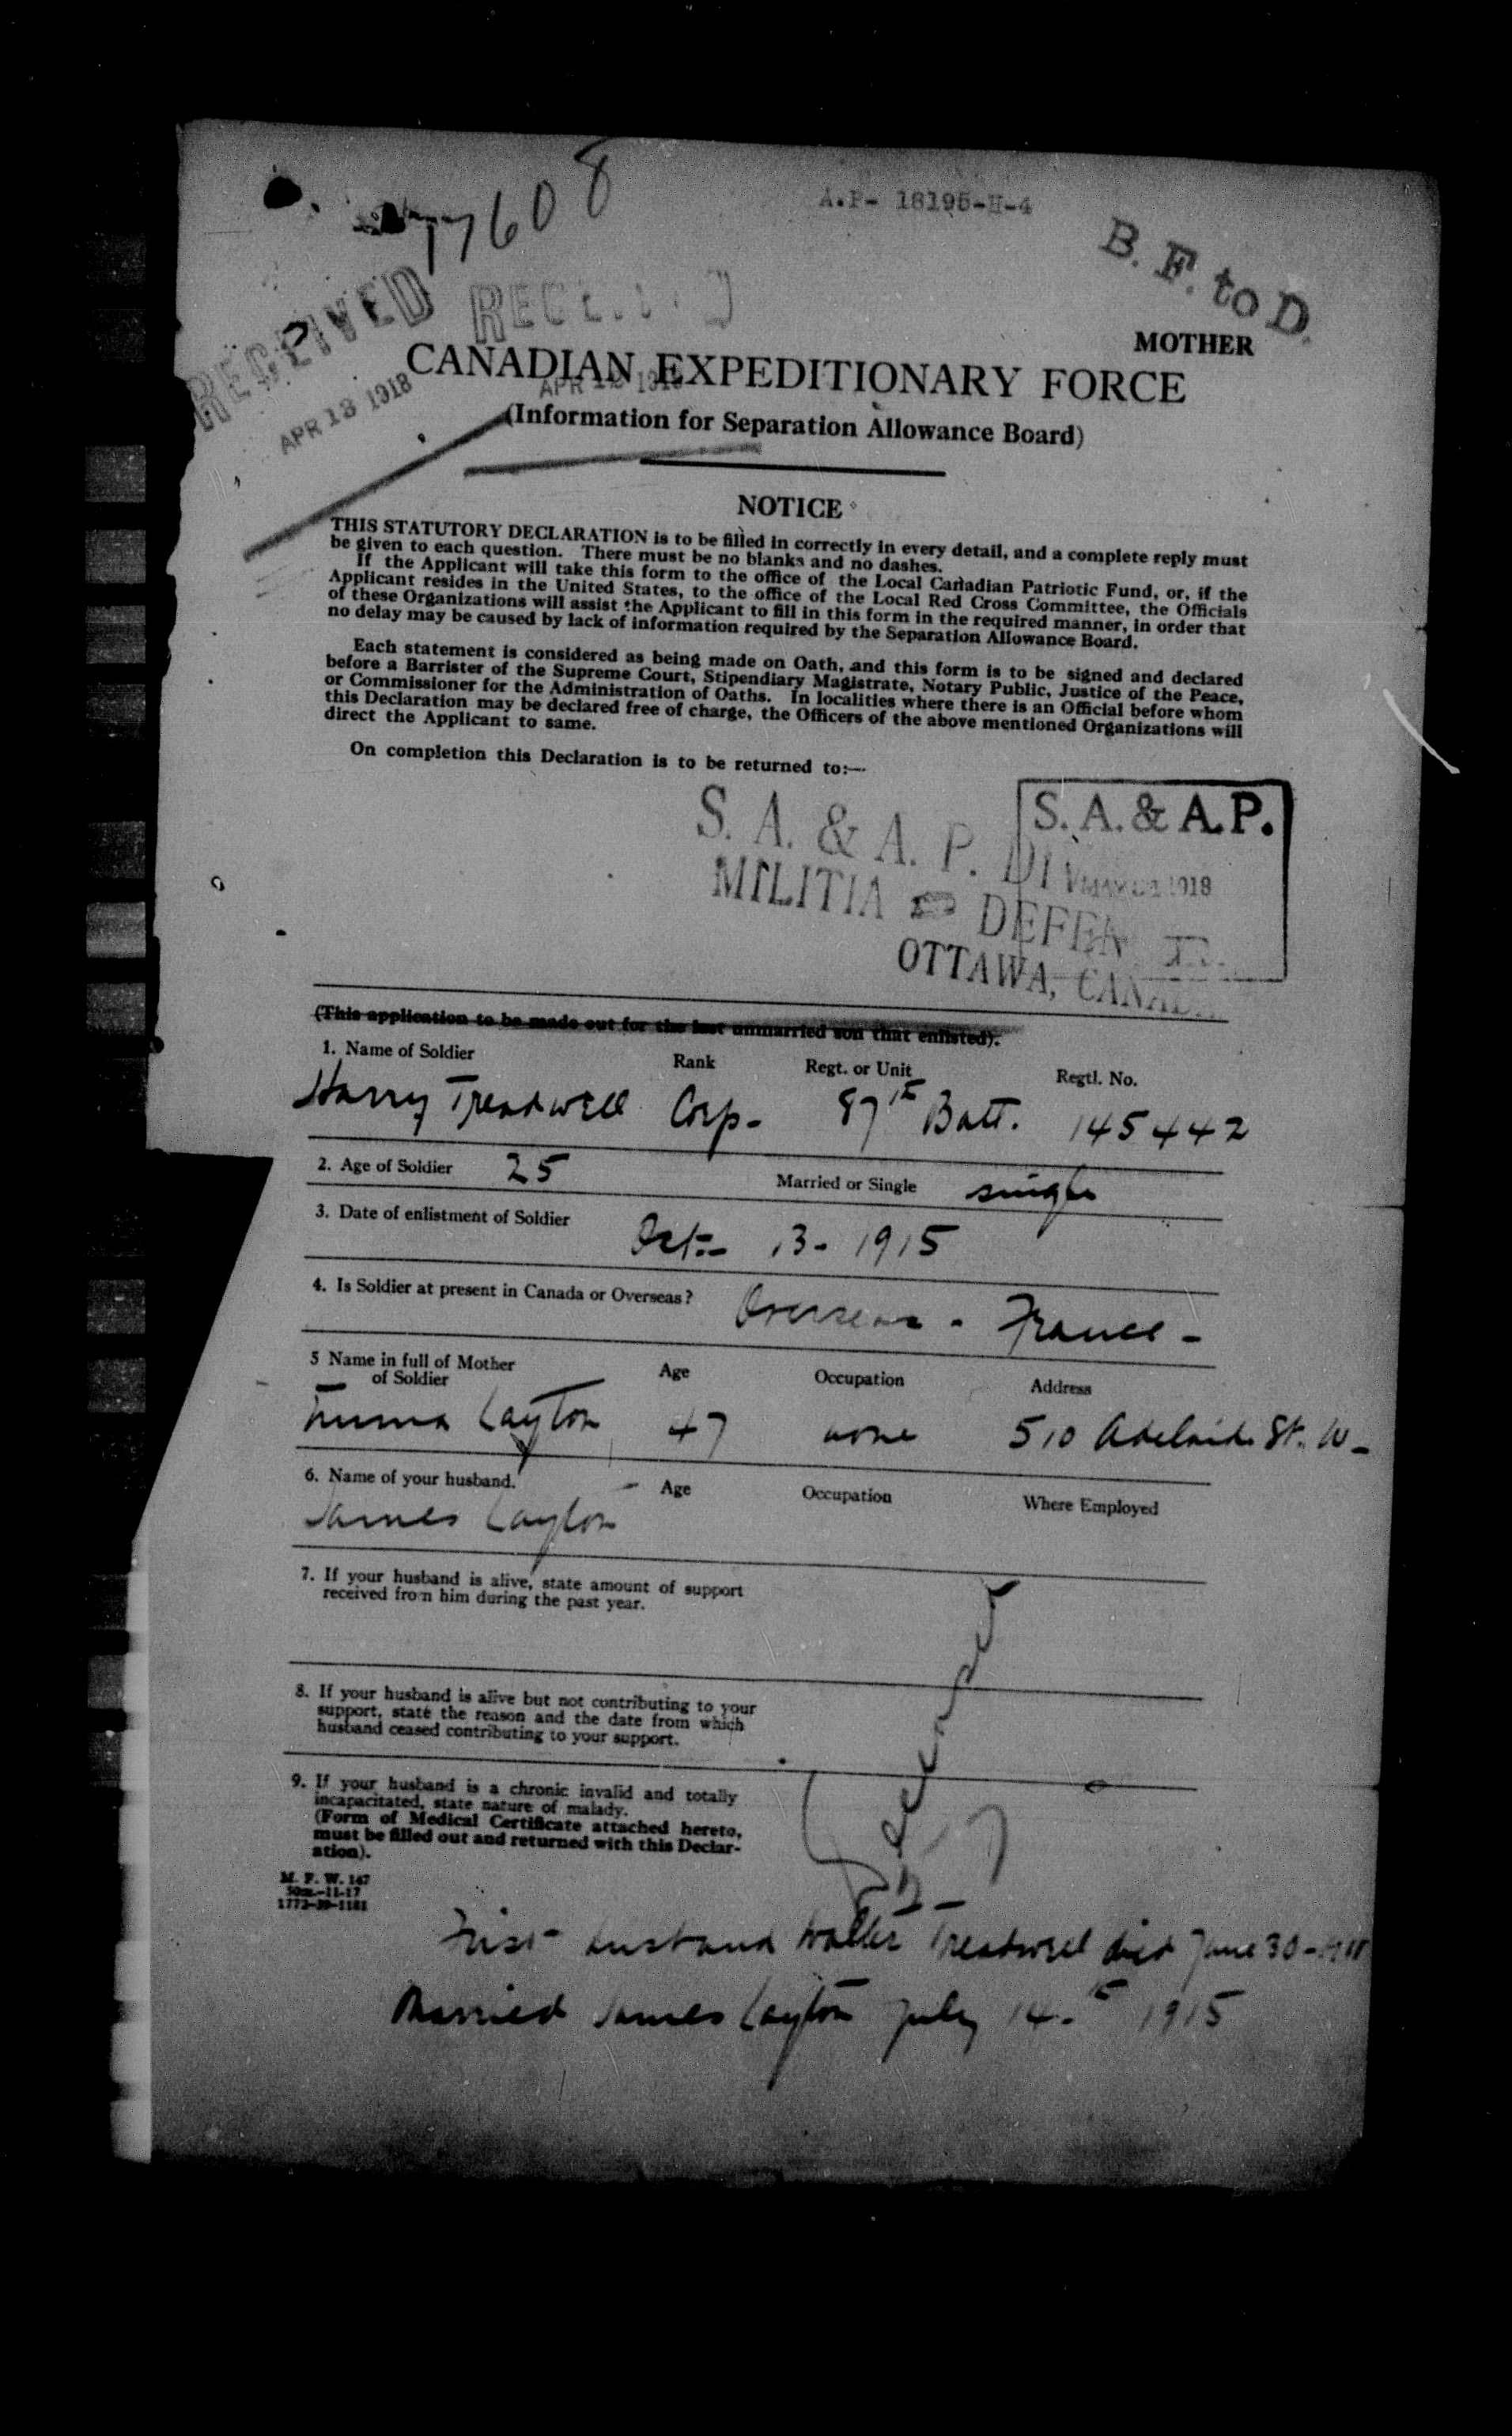 77608
A.P- 18195-H-4
B. F. to D.
RECEIVED
APR 13 1918
MOTHER
CANADIAN EXPEDITIONARY FORCE
(Information for Separation Allowance Board)
NOTICE
THIS STATUTORY DECLARATION is to be filled in correctly in every detail, and a complete reply must
be given to each question. There must be no blanks and no dashes.
If the Applicant will take this form to the office of the Local Canadian Patriotic Fund, or, if the
Applicant resides in the United States, to the office of the Local Red Cross Committee, the Officials
of these Organizations will assist the Applicant to fill in this form in the required manner, in order that
no delay may be caused by lack of information required by the Separation Allowance Board.
Each statement is considered as being made on Oath, and this form is to be signed and declared
before a Barrister of the Supreme Court, Stipendiary Magistrate, Notary Public, Justice of the Peace,
or Commissioner for the Administration of Oaths. In localities where there is an Official before whom
this Declaration may be declared free of charge, the Officers of the above mentioned Organizations will
direct the Applicant to same.
On completion this Declaration is to be returned to:—
S. A. & A. P.
1918
S. A. & A. P. DIV
MILITIA DEFEN
OTTAWA, CANAD
(This application to be made out for the last unmarried son that enlisted).
1. Name of Soldier Rank Regt. or Unit Regtl. No.
Harry Treadwell Corp- 87th Batt. 145442
2. Age of Soldier 25 Married or Single single
3. Date of enlistment of Soldier Oct- 13- 1915
4. Is Soldier at present in Canada or Overseas? Overseas - France -
5 Name in full of Mother Age Occupation Address
of Soldier
Emma Layton 47 none 510 Adelaide St. W-
6. Name of your husband. Age Occupation Where Employed
James Layton
7. If your husband is alive, state amount of support
received from him during the past year.
8. If your husband is alive but not contributing to your
support, state the reason and the date from which
husband ceased contributing to your support.
9. If your husband is a chronic invalid and totally
incapacitated, state nature of malady.
(Form of Medical Certificate attached hereto,
must be filled out and returned with this Declar-
ation).
M. F. W. 147
50m.-11-17
1772-39-1181
First husband Walter Treadwell died June 30-
Married James Layton July 14th 1915